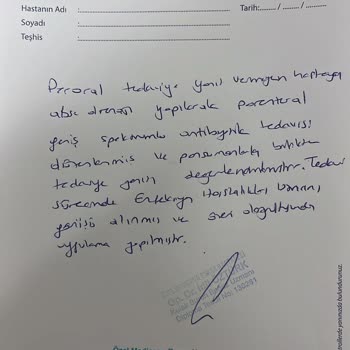 Hastanın Adı :
Tarih:....../....../......
Soyadı :
Teşhis :
Peroral tedaviye yanıt vermeyen hastaya
abse drenajı yapılarak parenteral
geniş spektrumlu antibiyotik tedavisi
düzenlenmiş ve pansumanlarla birlikte
tedaviye yanıtı değerlendirilmiştir. Tedavi
sürecinde Enfeksiyon Hastalıkları Uzmanı
görüşü alınmış ve öneri doğrultusunda
uygulama yapılmıştır.
Op. Dr.
Kulak Burun Boğaz Uzmanı
Diploma Tescil No: 130291